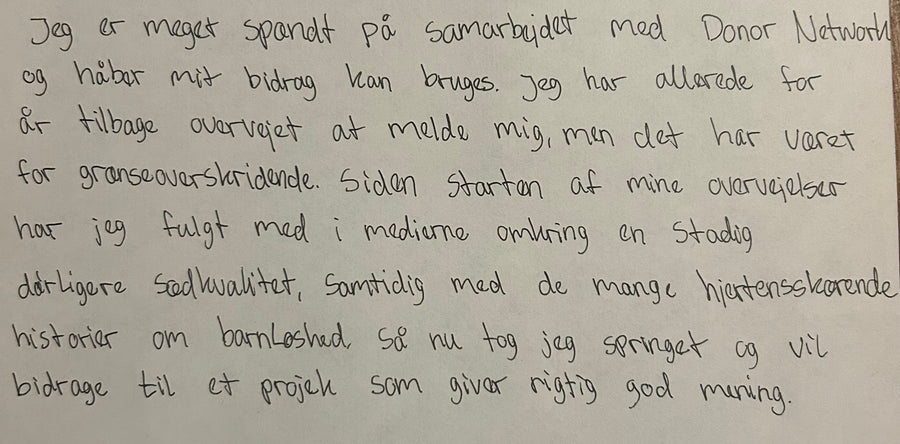 Jeg er meget spændt på samarbejdet med Donor Network
og håber mit bidrag kan bruges. Jeg har allerede for
år tilbage overvejet at melde mig, men det har været
for grænseoverskridende. Siden starten af mine overvejelser
har jeg fulgt med i medierne omkring en stadig
dårligere sædkvalitet, samtidig med de mange hjertensskærende
historier om barnløshed, så nu tog jeg springet og vil
bidrage til et projek som giver rigtig god mening.